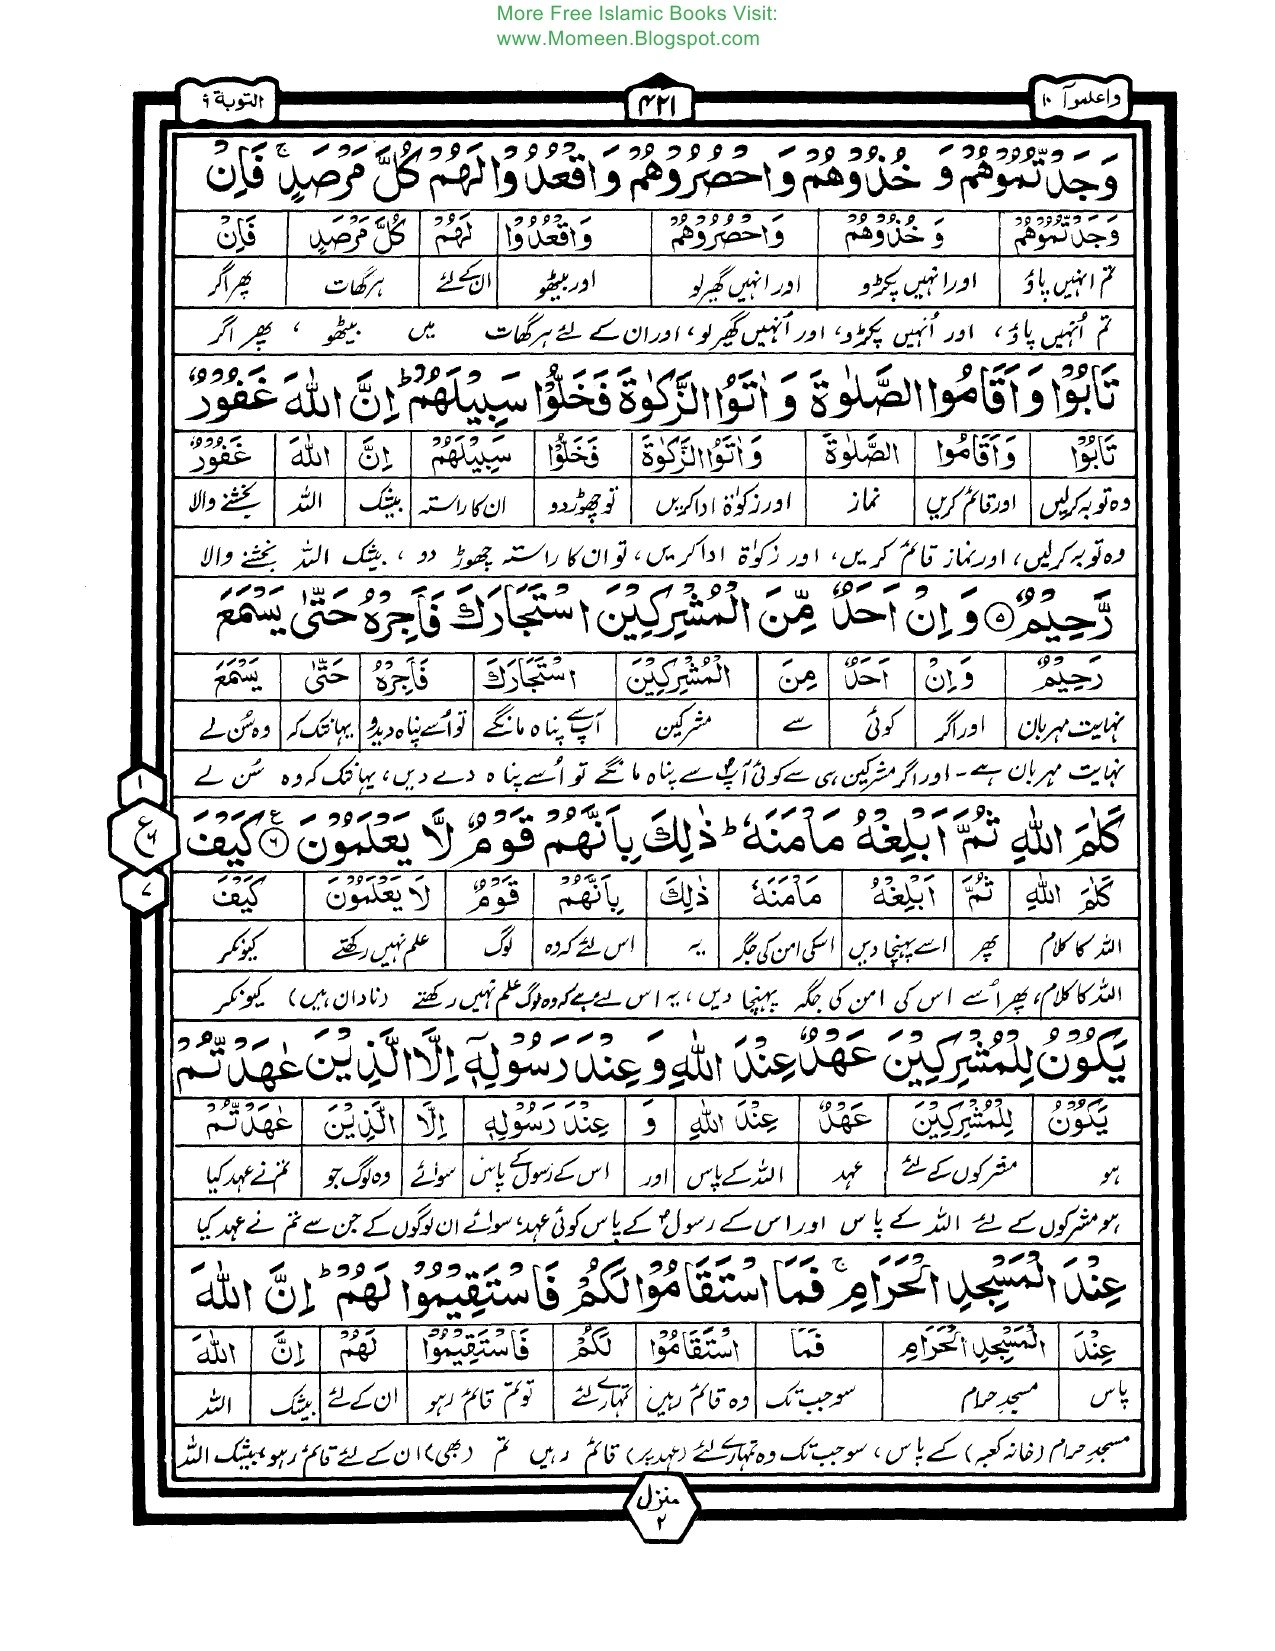 More Free Islamic Books Visit:
www.Momeen.Blogspot.com
واعلموآ ١٠
۴۲۱
التوبة ۹
وَجَدْتُّمُوْهُمْ وَ خُذُوْهُمْ وَاحْصُرُوْهُمْ وَاقْعُدُوْا لَهُمْ كُلَّ مَرْصَدٍ ۚ فَاِنْ
وَجَدْتُّمُوْهُمْ وَ خُذُوْهُمْ وَاحْصُرُوْهُمْ وَاقْعُدُوْا لَهُمْ كُلَّ مَرْصَدٍ فَاِنْ
تم انہیں پاؤ اور انہیں پکڑو اور انہیں گھیر لو اور بیٹھو ان کے لئے ہر گھات پھر اگر
تم اُنہیں پاؤ، اور اُنہیں پکڑو، اور اُنہیں گھیر لو، اور ان کے لئے ہر گھات میں بیٹھو ، پھر اگر
تَابُوْا وَاَقَامُوا الصَّلٰوةَ وَ اٰتَوُا الزَّكٰوةَ فَخَلُّوْا سَبِيْلَهُمْ ؕ اِنَّ اللّٰهَ غَفُوْرٌ
تَابُوْا وَاَقَامُوا الصَّلٰوةَ وَاٰتَوُا الزَّكٰوةَ فَخَلُّوْا سَبِيْلَهُمْ اِنَّ اللّٰهَ غَفُوْرٌ
وہ توبہ کرلیں اور قائم کریں نماز اور زکوٰة ادا کریں تو چھوڑ دو ان کا راستہ بیشک اللہ بخشنے والا
وہ توبہ کرلیں، اور نماز قائم کریں، اور زکوٰة ادا کریں، تو ان کا راستہ چھوڑ دو ، بیشک اللہ بخشنے والا
رَّحِيْمٌ ۝۵ وَ اِنْ اَحَدٌ مِّنَ الْمُشْرِكِيْنَ اسْتَجَارَكَ فَاَجِرْهُ حَتّٰى يَسْمَعَ
رَحِيْمٌ وَاِنْ اَحَدٌ مِنَ الْمُشْرِكِيْنَ اسْتَجَارَكَ فَاَجِرْهُ حَتّٰى يَسْمَعَ
نہایت مہربان اور اگر کوئی سے مشرکین آپ سے پناہ مانگے تو اُسے پناہ دیدو یہانتک کہ وہ سُن لے
نہایت مہربان ہے۔ اور اگر مشرکین ہی سے کوئی آپؐ سے پناہ مانگے تو اُسے پناہ دے دیں، یہانتک کہ وہ سُن لے
كَلٰمَ اللّٰهِ ثُمَّ اَبْلِغْهُ مَاْمَنَهٗ ؕ ذٰلِكَ بِاَنَّهُمْ قَوْمٌ لَّا يَعْلَمُوْنَ ۝۶ كَيْفَ
كَلٰمَ اللّٰهِ ثُمَّ اَبْلِغْهُ مَاْمَنَهٗ ذٰلِكَ بِاَنَّهُمْ قَوْمٌ لَا يَعْلَمُوْنَ كَيْفَ
اللہ کا کلام پھر اسے پہنچا دیں اسکی امن کی جگہ یہ اس لئے کہ وہ لوگ علم نہیں رکھتے کیونکر
اللہ کا کلام، پھر اُسے اس کی امن کی جگہ پہنچا دیں، یہ اس لئے ہے کہ وہ لوگ علم نہیں رکھتے (نادان ہیں) کیونکر
يَكُوْنُ لِلْمُشْرِكِيْنَ عَهْدٌ عِنْدَ اللّٰهِ وَ عِنْدَ رَسُوْلِهٖۤ اِلَّا الَّذِيْنَ عٰهَدْتُّمْ
يَكُوْنُ لِلْمُشْرِكِيْنَ عَهْدٌ عِنْدَ اللّٰهِ وَ عِنْدَ رَسُوْلِهٖ اِلَّا الَّذِيْنَ عٰهَدْتُّمْ
ہو مشرکوں کے لئے عہد اللہ کے پاس اور اس کے رسول کے پاس سوائے وہ لوگ جو تم نے عہد کیا
ہو مشرکوں کے لئے اللہ کے پاس اور اس کے رسولؐ کے پاس کوئی عہد، سوائے ان لوگوں کے جن سے تم نے عہد کیا
عِنْدَ الْمَسْجِدِ الْحَرَامِ ۚ فَمَا اسْتَقَامُوْا لَكُمْ فَاسْتَقِيْمُوْا لَهُمْ ؕ اِنَّ اللّٰهَ
عِنْدَ الْمَسْجِدِ الْحَرَامِ فَمَا اسْتَقَامُوْا لَكُمْ فَاسْتَقِيْمُوْا لَهُمْ اِنَّ اللّٰهَ
پاس مسجد حرام سو جب تک وہ قائم رہیں تمہارے لئے تو تم قائم رہو ان کے لئے بیشک اللہ
مسجد حرام (خانہ کعبہ) کے پاس، سو جب تک وہ تمہارے لئے (عہد پر) قائم رہیں تم (بھی) ان کے لئے قائم رہو، بیشک اللہ
۱
ع ۶
۷
منزل
۲